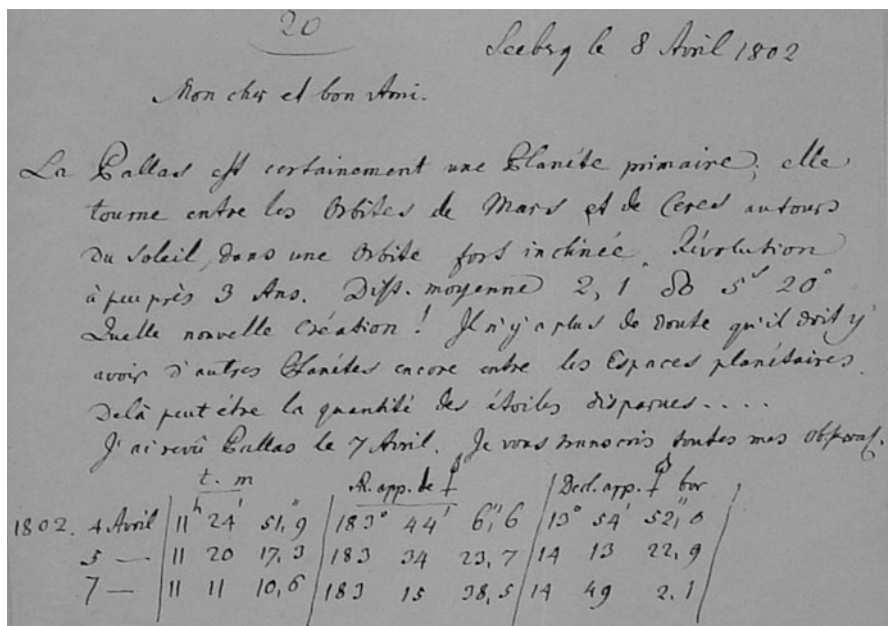 20
Seeberg le 8 Avril 1802
Mon cher et bon Ami.
La Pallas est certainement une Planéte primaire, elle
tourne entre les Orbites de Mars et de Ceres autours
du Soleil, dans une Orbite fort inclinée. Révolution
à peu près 3 Ans. Dist. moyenne 2, 1 ☊ 5ˢ 20°
Quelle nouvelle Création! Il n'y a plus de doute qu'il doit y
avoir d'autres Planétes encore entre les Espaces planétaires.
Delà peut être la quantité des étoiles disparues....
J'ai revû Pallas le 7 Avril. Je vous transcris toutes mes observat.
t. m | AR. app. de ⚴ | Decl. app. ⚴ bor
1802. 4 Avril | 11ʰ 24' 51",9 | 183° 44' 6",6 | 13° 54' 52",0
5 — | 11 20 17,3 | 183 34 23,7 | 14 13 22,9
7 — | 11 11 10,6 | 183 15 38,5 | 14 49 2,1